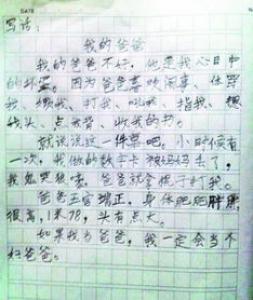 写话:
我的爸爸
我的爸爸不好,他是我心目中
的坏蛋。因为爸爸喜欢闹事、
我、烦我、打我、吼我、指我、
头、点我背、收我的书。
就说说这一件事吧。小时候有
一次,我做的数字卡被妈妈丢了,
我鬼哭狼嚎。爸爸就拿棍子打我。
爸爸五官端正,身体肥肥胖胖,
很高,1米78,头有点大。
如果我当爸爸,我一定会当个
好爸爸。